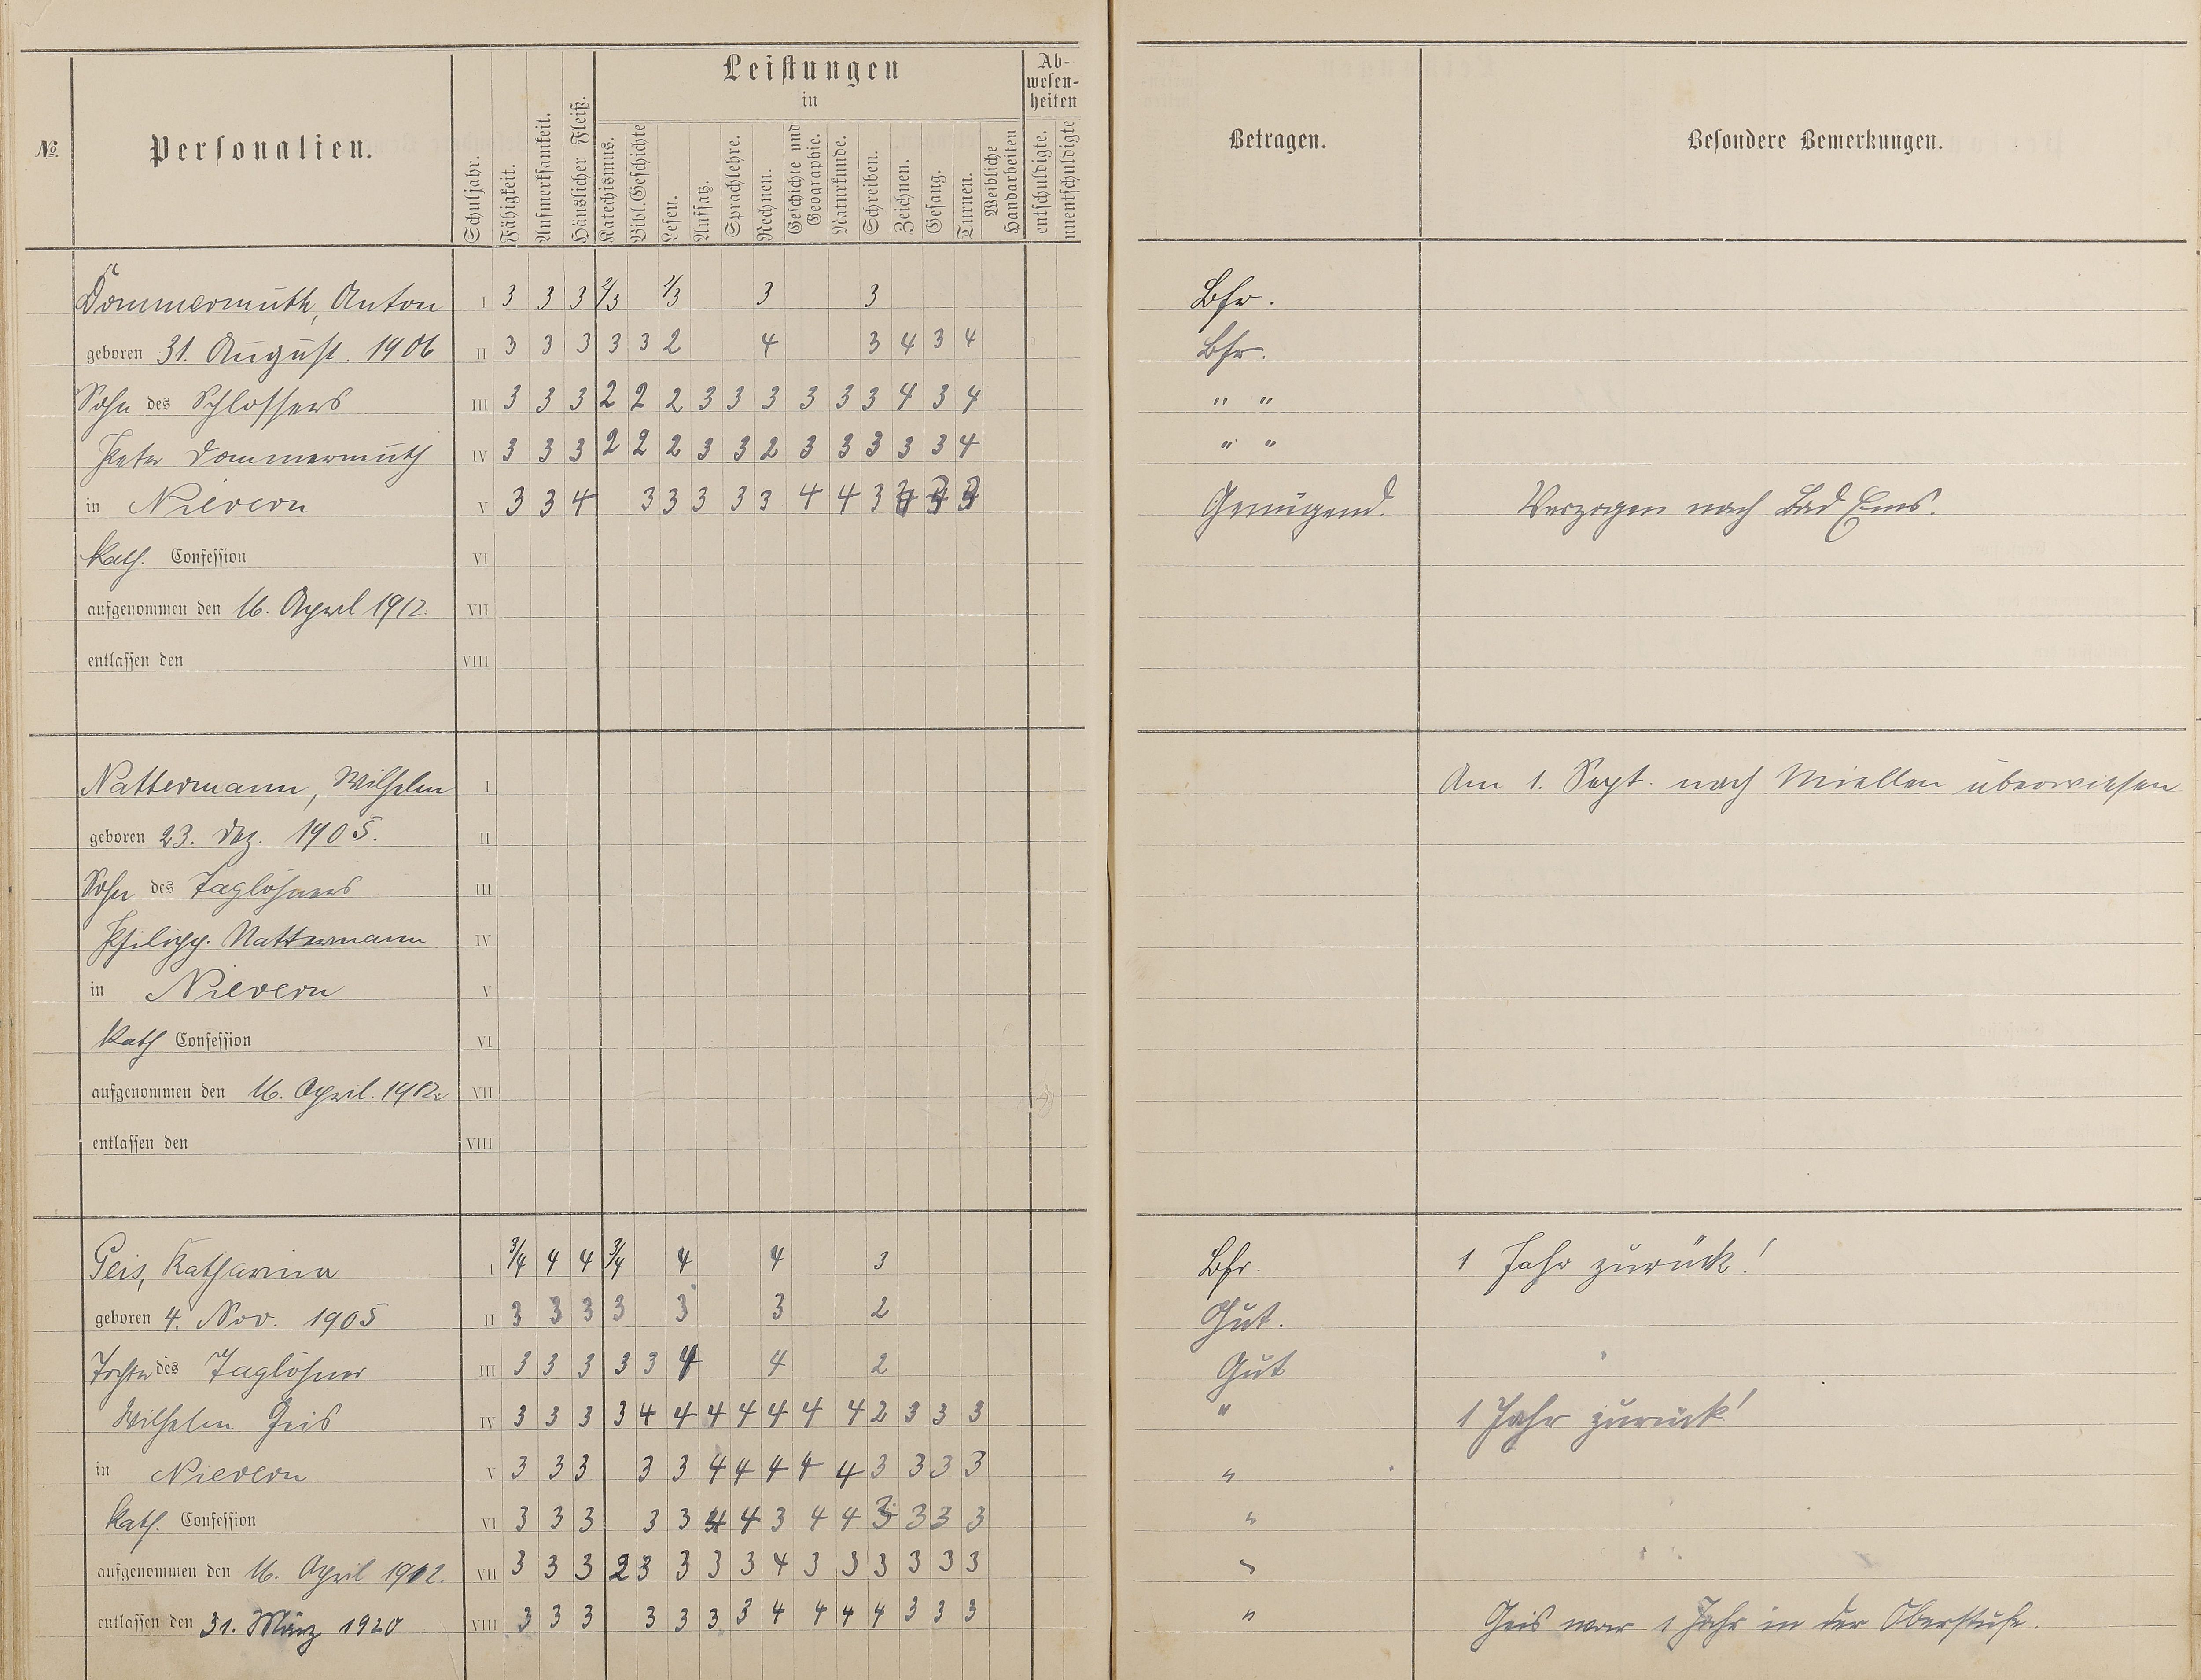 №. Personalien. Schuljahr. Fähigkeit. Aufmerksamkeit. Häuslicher Fleiß. Leistungen in Katechismus. Bibl. Geschichte Lesen. Aufsatz. Sprachlehre. Rechnen. Geschichte und Geographie. Naturkunde. Schreiben. Zeichnen. Gesang. Turnen. Weibliche Handarbeiten Abwesenheiten entschuldigte. unentschuldigte Betragen. Besondere Bemerkungen.
Dommermuth, Anton I 3 3 3 2/3 2/3 3 3 Bfr.
geboren 31. August. 1906 II 3 3 3 3 3 2 4 3 4 3 4 Bfr.
Sohn des Schlossers III 3 3 3 2 2 2 3 3 3 3 3 3 4 3 4 " "
Peter Dommermuth IV 3 3 3 2 2 2 3 3 2 3 3 3 3 3 4 " "
in Nievern V 3 3 4 3 3 3 3 3 4 4 3 Genügend. Verzogen nach Bad Ems.
Kath. Confession VI
aufgenommen den 16. April 1912. VII
entlassen den VIII
Nattermann, Wilhelm I Am 1. Sept. nach Miellen überwiesen
geboren 23. Dez. 1905. II
Sohn des Taglöhners III
Philipp. Nattermann IV
in Nievern V
Kath Confession VI
aufgenommen den 16. April. 1912. VII
entlassen den VIII
Geis, Katharina I 3/4 4 4 3/4 4 4 3 Bfr. 1 Jahr zurück!
geboren 4. Nov. 1905 II 3 3 3 3 3 3 2 Gut.
Tochter des Taglöhner III 3 3 3 3 3 4 4 2 Gut
Wilhelm Geis IV 3 3 3 3 4 4 4 4 4 4 4 2 3 3 3 " 1 Jahr zurück!
in Nievern V 3 3 3 3 3 4 4 4 4 4 3 3 3 3 "
Kath. Confession VI 3 3 3 3 3 4 4 3 4 4 3 3 3 3 "
aufgenommen den 16. April 1912. VII 3 3 3 2 3 3 3 3 4 3 3 3 3 3 3 "
entlassen den 31. März 1920 VIII 3 3 3 3 3 3 3 4 4 4 4 3 3 3 " Geis war 1 Jahr in der Oberstufe.